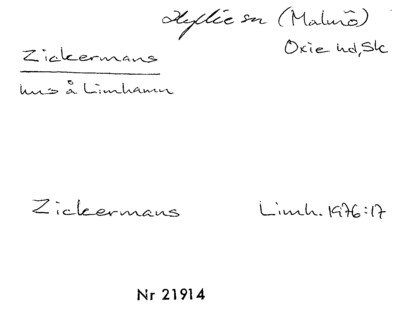 Hyllie sn (Malmö)
Oxie hd, Sk
Zickermans
hus å Limhamn
Zickermans Limh. 1976:17
Nr 21914